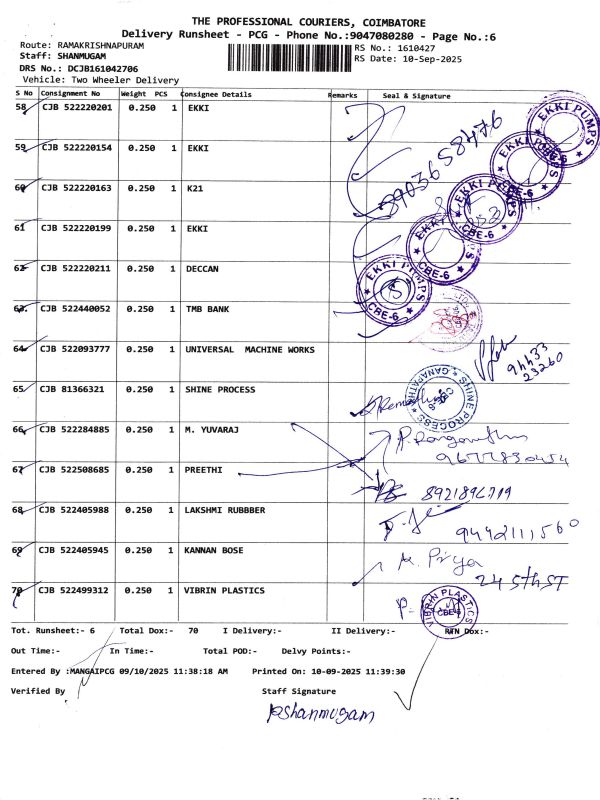 THE PROFESSIONAL COURIERS, COIMBATORE
Delivery Runsheet - PCG - Phone No.:9047080280 - Page No.:6
Route: RAMAKRISHNAPURAM
RS No.: 1610427
Staff: SHANMUGAM
RS Date: 10-Sep-2025
DRS No.: DCJB161042706
Vehicle: Two Wheeler Delivery
S No Consignment No Weight PCS Consignee Details Remarks Seal & Signature
58 CJB 522220201 0.250 1 EKKI
EKKI PUMPS CBE-6
8903658476
59 CJB 522220154 0.250 1 EKKI
EKKI PUMPS CBE-6
60 CJB 522220163 0.250 1 K21
EKKI PUMPS CBE-6
61 CJB 522220199 0.250 1 EKKI
EKKI PUMPS CBE-6
62 CJB 522220211 0.250 1 DECCAN
EKKI PUMPS CBE-6
63. CJB 522440052 0.250 1 TMB BANK
64 CJB 522093777 0.250 1 UNIVERSAL MACHINE WORKS
94433
23260
65 CJB 81366321 0.250 1 SHINE PROCESS
SHINE PROCESS GANAPATHY
66 CJB 522284885 0.250 1 M. YUVARAJ
9677830454
67 CJB 522508685 0.250 1 PREETHI
68 CJB 522405988 0.250 1 LAKSHMI RUBBBER
9442111560
69 CJB 522405945 0.250 1 KANNAN BOSE
K. Priya
24 5th ST
70 CJB 522499312 0.250 1 VIBRIN PLASTICS
VIBRIN PLASTICS CBE-6
Tot. Runsheet:- 6 Total Dox:- 70 I Delivery:- II Delivery:- RTN Dox:-
Out Time:- In Time:- Total POD:- Delvy Points:-
Entered By :MANGAIPCG 09/10/2025 11:38:18 AM Printed On: 10-09-2025 11:39:30
Verified By Staff Signature
Pshanmugam